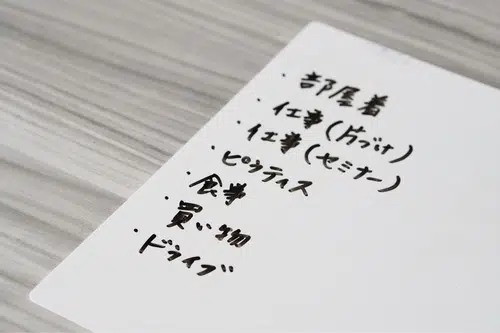 ・部屋着
・仕事(片づけ)
・仕事(セミナー)
・ピラティス
・食事
・買い物
・ドライブ